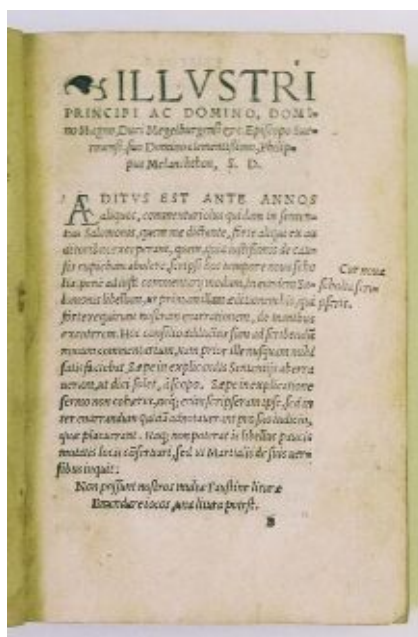 ILLVSTRI
PRINCIPI AC DOMINO, DOMI-
no Magno, Duci Megelburgensi &c. Episcopo Sue-
rinensi, suo Domino clementissimo, Philip-
pus Melanchthon, S. D.
ÆDITVS EST ANTE ANNOS
aliquot, commentariolus quidam in senten-
tias Salomonis, quem me dictante, forte aliqui ex au
ditoribus exceperant, quem, quia iustissimis de cau-
sis cupiebam abolere, scripsi hoc tempore noua scho
lia, pene ad iusti commentarij modum, in eundem Sa-
lomonis libellum, ut primam illam æditionem his, qui
forte requirunt nostram enarrationem, de manibus
excuterem. Hoc consilio adductus sum ad scribendum
nouum commentarium, nam prior ille nusquam mihi
satisfaciebat. Sæpe in explicandis Sententijs aberra
uerant, ut dici solet, à scopo. Sæpe in explicatione
sermo non cohæret, neq; enim scripseram ipse, sed in
ter enarrandum quidã adnotauerant pro suo iudicio,
quæ placuerant. Itaq; non poterat is libellus paucis
mutatis locis emendari, sed ut Martialis de suis uer-
sibus inquit:
Non possunt nostros multæ Faustine lituræ
Emendare iocos, una litura potest.
B
Cur noua
scholia scri
pserit.